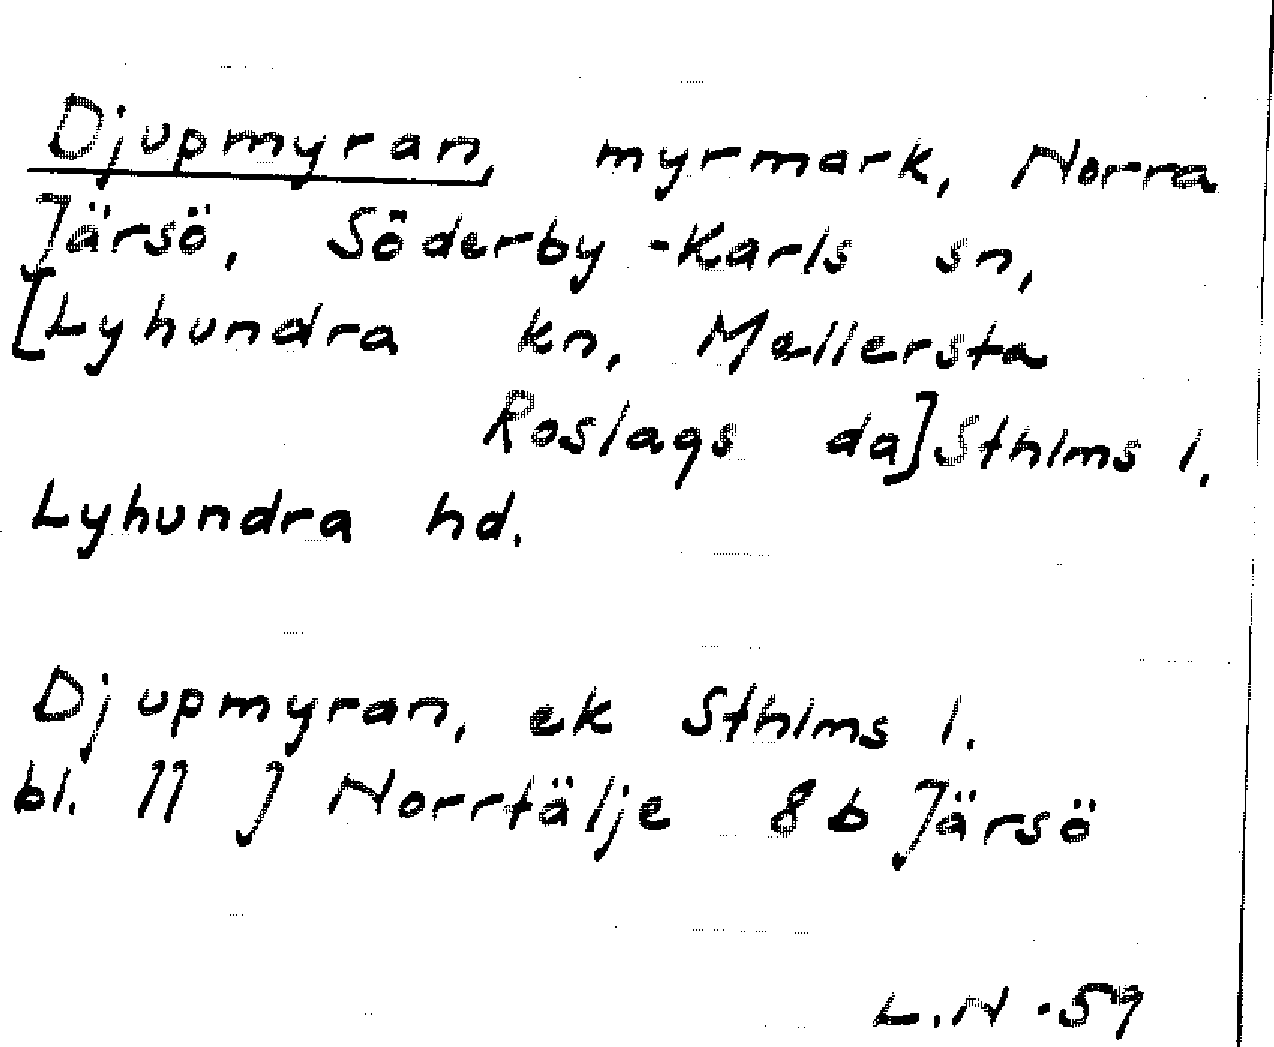 Djupmyran, myrmark, Norra
Järsö, Söderby-Karls sn,
[Lyhundra kn, Mellersta
Roslags da] Sthlms l.
Lyhundra hd.
Djupmyran, ek Sthlms l.
bl. 11 J Norrtälje 8 b Järsö
L.N -59